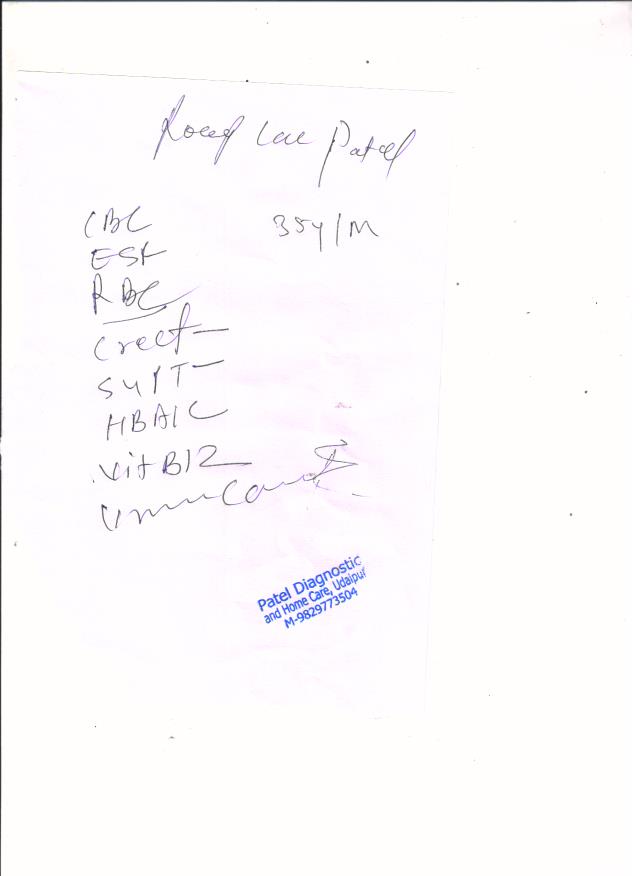 Lal Patel
CBC 35y/M
ESR
RBC
Creat
SGPT
HBA1C
Vit B12
Patel Diagnostic
and Home Care, Udaipur
M-9829773504